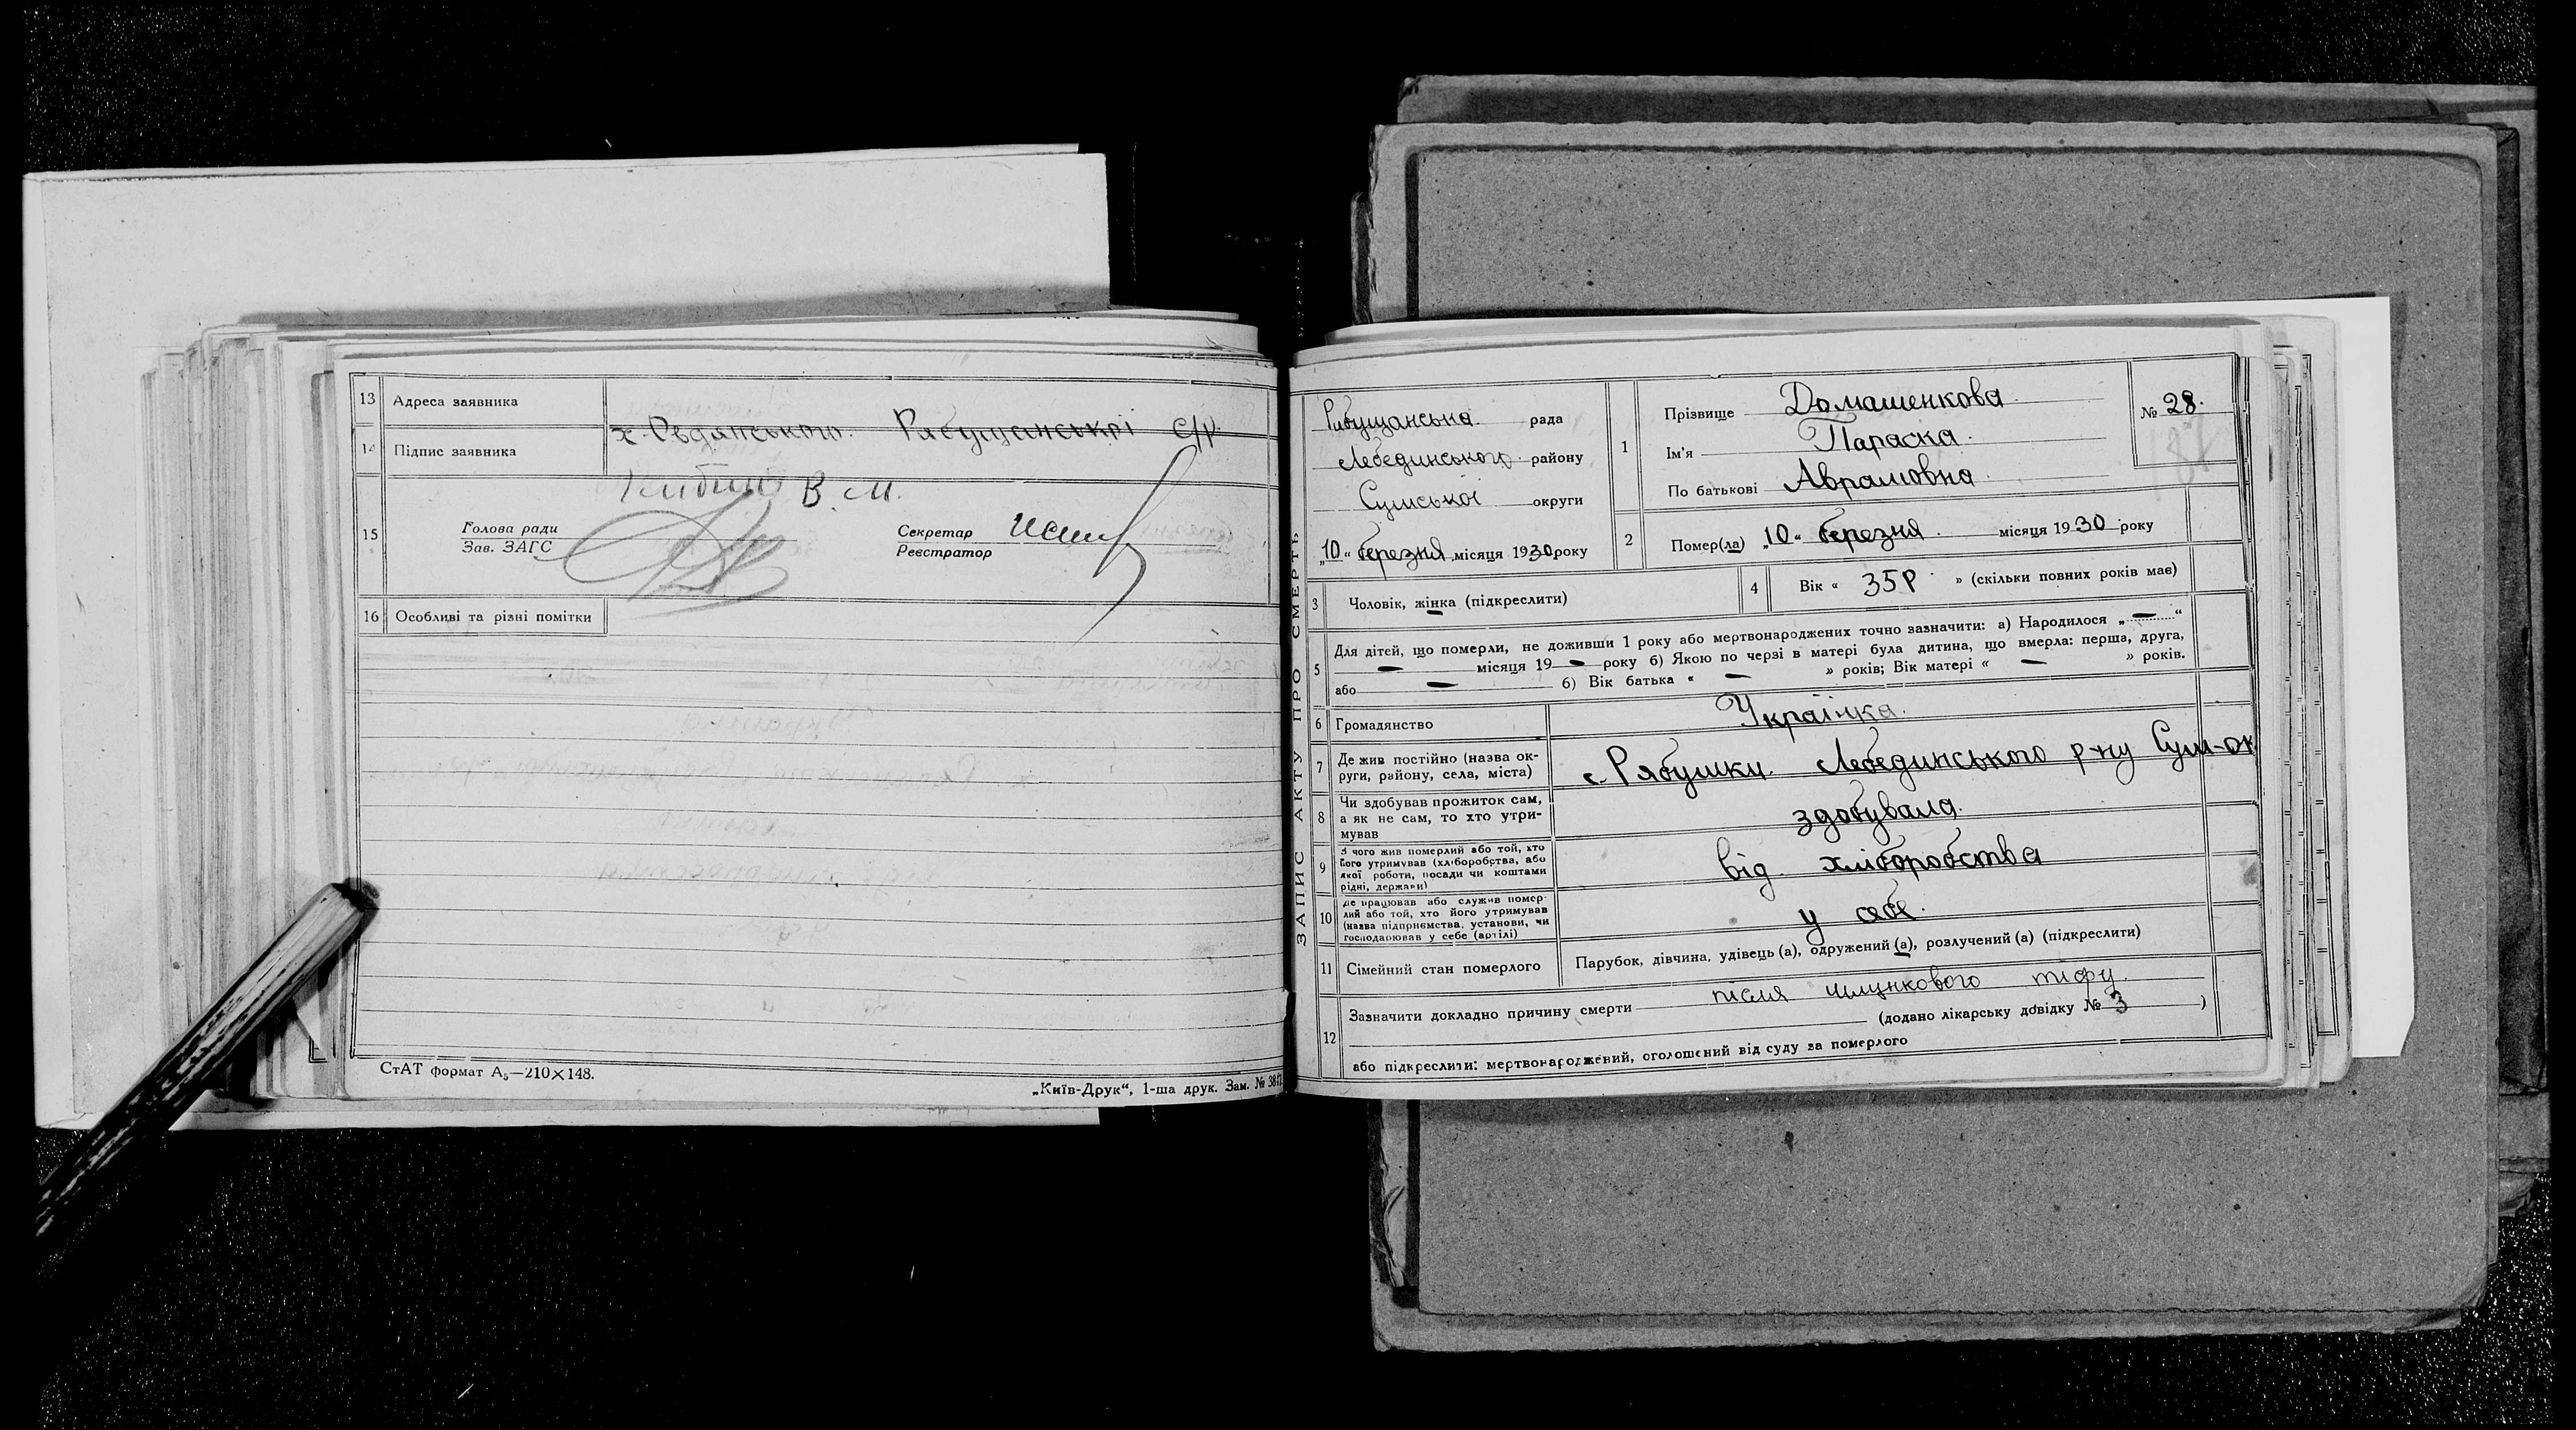 13 Адреса заявника
х. Овдянського. Рябушанської С/р.
14 Підпис заявника
В. М.
15
Голова ради
Зав. ЗАГС
Секретар
Реєстратор
16 Особливі та різні помітки
СтАТ формат А₅—210×148.
„Київ-Друк“, 1-ша друк. Зам. №
ЗАПИС АКТУ ПРО СМЕРТЬ
Рябущанська рада
Лебединського району
Сумської округи
„10“ березня місяця 1930 року
1 Прізвище Домашенкова
Ім'я Параска.
По батькові Аврамовна
№ 28.
2 Помер(ла) „10“ березня. місяця 1930 року
3 Чоловік, жінка (підкреслити)
4 Вік « 35 р. » (скільки повних років має)
5 Для дітей, що померли, не доживши 1 року або мертвонароджених точно зазначити: а) Народилося „ — “
— місяця 19 — року б) Якою по черзі в матері була дитина, що вмерла: перша, друга,
або — б) Вік батька « — » років; Вік матері « — » років.
6 Громадянство Українка.
7 Де жив постійно (назва ок-
руги, району, села, міста)
с Рябушки Лебединського р-ну Сум-ок
8 Чи здобував прожиток сам,
а як не сам, то хто утри-
мував
здобувала.
9 З чого жив померлий або той, хто
його утримував (хліборобства, або
якої роботи, посади чи коштами
рідні, держави)
від хліборобства
10 Де працював або служив помер-
лий або той, хто його утримував
(назва підприємства, установи, чи
господарював у себе (артілі)
у себе.
11 Сімейний стан померлого
Парубок, дівчина, удівець (а), одружений (а), розлучений (а) (підкреслити)
12 Зазначити докладно причину смерти після шлункового тифу.
(додано лікарську довідку № 3 )
або підкреслити: мертвонароджений, оголошений від суду за померлого